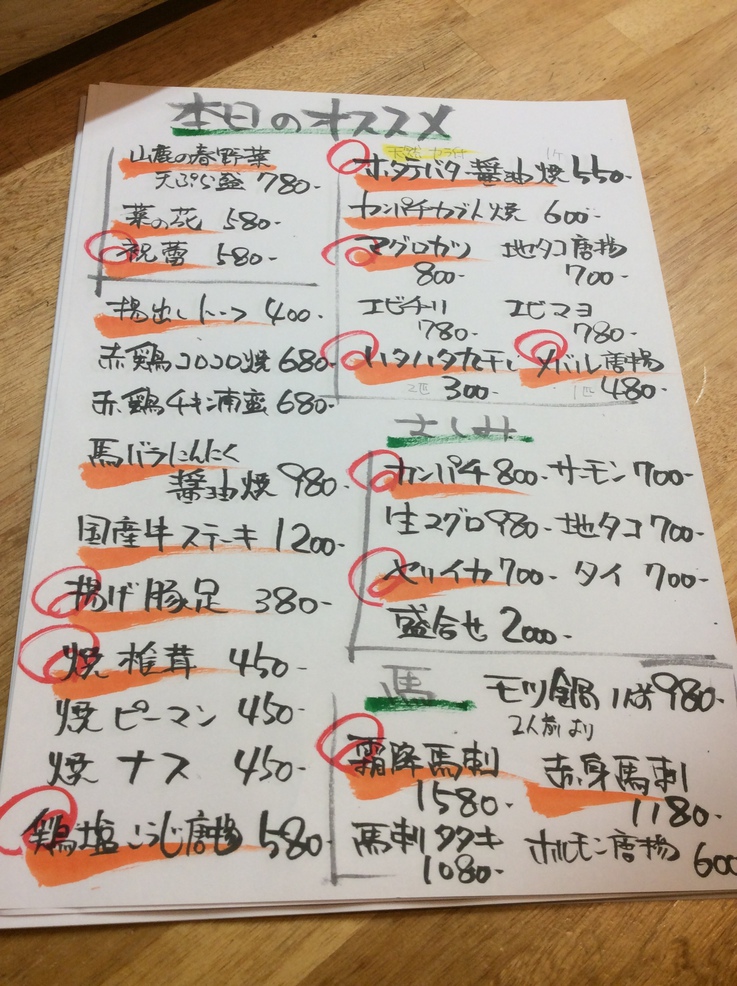 本日のオススメ
山鹿の春野菜
天ぷら盛 780-
菜の花 580-
祝蕾 580-
揚出しトーフ 400-
赤鶏コロコロ焼 680-
赤鶏チキン南蛮 680-
馬バラにんにく
醤油焼 980-
国産牛ステーキ 1200-
揚げ豚足 380-
焼椎茸 450-
焼ピーマン 450-
焼ナス 450-
鶏塩こうじ唐揚 580-
天然 カラ付 1ケ
ホタテバター醤油焼 550-
カンパチカブト焼 600-
マグロカツ 地タコ唐揚
800- 700-
エビチリ エビマヨ
780- 780-
ハタハタ丸干し メバル唐揚
2匹 300- 1匹 480-
さしみ
カンパチ 800- サーモン 700-
生マグロ 980- 地タコ 700-
ヤリイカ 700- タイ 700-
盛合せ 2000-
馬 モツ鍋 1人前 980-
2人前より
霜降馬刺 赤身馬刺
1580- 1180-
馬刺タタキ ホルモン唐揚 600
1080-